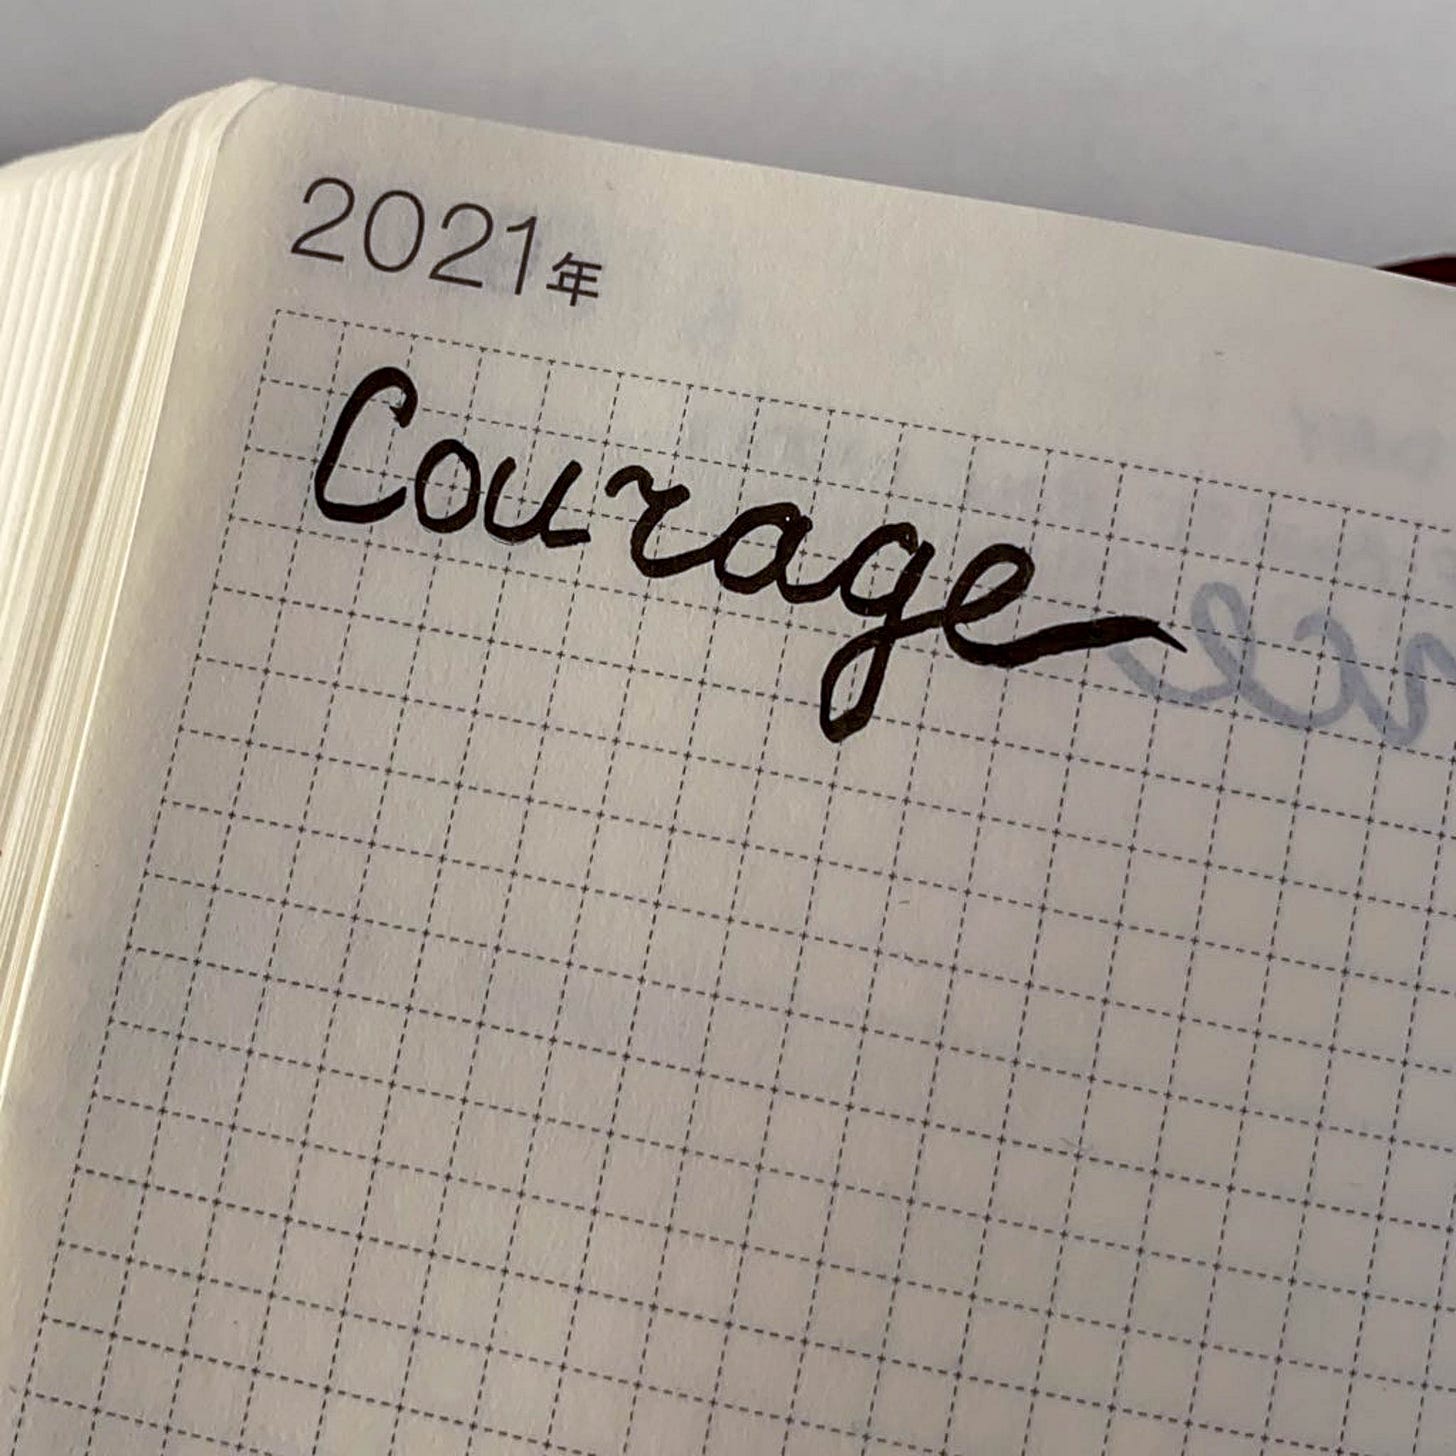 2021年
Courage